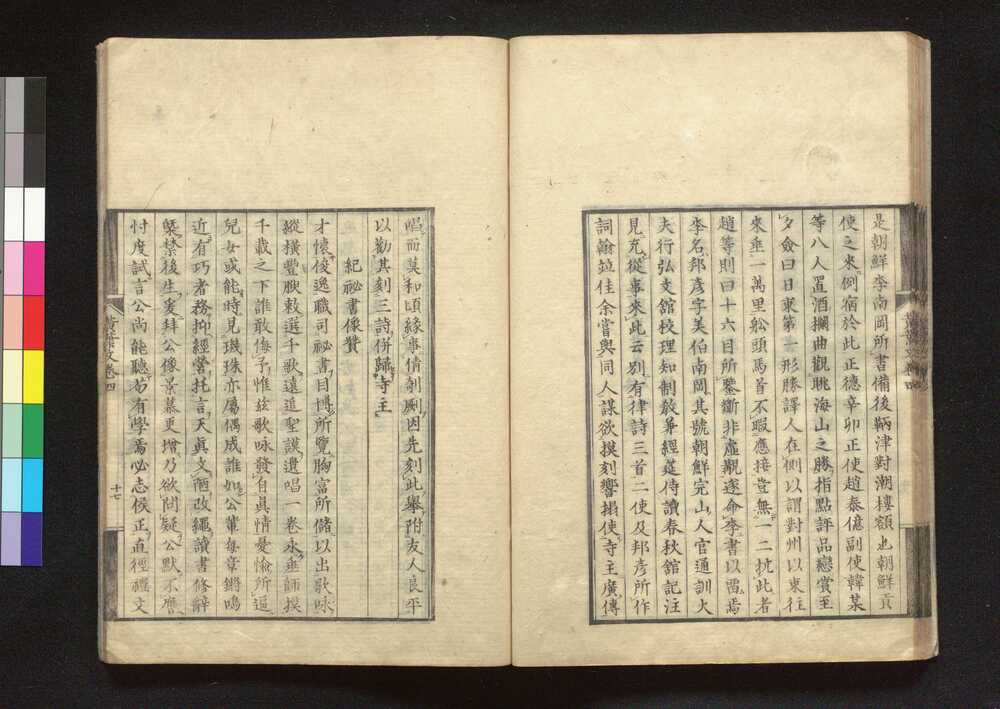 是朝鮮李南岡所書備後鞆津對潮樓額也朝鮮貢
使之來例宿於此正德辛卯正使趙泰億副使韓某
等八人置酒攔曲觀眺海山之勝指點評品戀賞至
夕僉曰日東第一形勝譯人在側以謂對州以東往
來垂一萬里舩頭馬首不暇應接豈無一二抗此者
趙等則曰十六目所鑒斷非虛觀遂命李書以畱焉
李名邦彦字美伯南岡其號朝鮮完山人官通訓大
夫行弘文館校理知制敎兼經筵侍讀春秋館記注
見充從事來此云別有律詩三首二使及邦彦所作
詞翰竝佳余嘗與同人謀欲摸刻響搨使寺主廣傳
唱而莫和頃緣事倩剞劂因先刻此擧附友人良平
以勸其刻三詩併歸寺主
紀祕書像贊
才懷俊逸職司祕書目博所覽胸富所儲以出歌咏
縱橫豐腴敕選千歌遠追聖謨遺唱一卷永垂師摸
千載之下誰敢侮予惟茲歌咏發自眞情憂愉所逼
兒女或能時見璣珠亦屬偶成誰如公輩每章鏘鳴
近有巧者務抑經營托言天眞文陋改繩讀書修辭
槩禁後生爰拜公像景慕更增乃欲問疑公默不應
忖度試言公尚能聽苟有學焉必志候正直徑禮文
黃葉夕陽村舍文卷四
十七